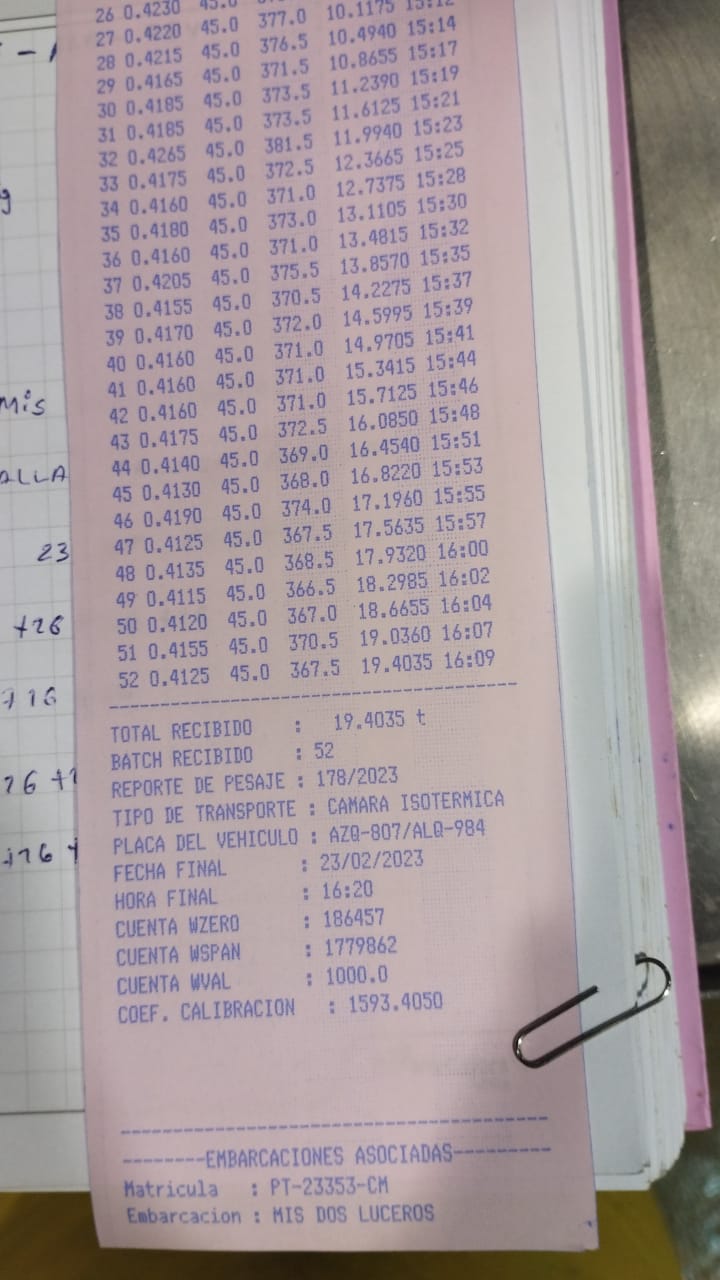 26 0.4230 45.0
27 0.4220 45.0 377.0 10.1175 15:12
28 0.4215 45.0 376.5 10.4940 15:14
29 0.4165 45.0 371.5 10.8655 15:17
30 0.4185 45.0 373.5 11.2390 15:19
31 0.4185 45.0 373.5 11.6125 15:21
32 0.4265 45.0 381.5 11.9940 15:23
33 0.4175 45.0 372.5 12.3665 15:25
34 0.4160 45.0 371.0 12.7375 15:28
35 0.4180 45.0 373.0 13.1105 15:30
36 0.4160 45.0 371.0 13.4815 15:32
37 0.4205 45.0 375.5 13.8570 15:35
38 0.4155 45.0 370.5 14.2275 15:37
39 0.4170 45.0 372.0 14.5995 15:39
40 0.4160 45.0 371.0 14.9705 15:41
41 0.4160 45.0 371.0 15.3415 15:44
42 0.4160 45.0 371.0 15.7125 15:46
43 0.4175 45.0 372.5 16.0850 15:48
44 0.4140 45.0 369.0 16.4540 15:51
45 0.4130 45.0 368.0 16.8220 15:53
46 0.4190 45.0 374.0 17.1960 15:55
47 0.4125 45.0 367.5 17.5635 15:57
48 0.4135 45.0 368.5 17.9320 16:00
49 0.4115 45.0 366.5 18.2985 16:02
50 0.4120 45.0 367.0 18.6655 16:04
51 0.4155 45.0 370.5 19.0360 16:07
52 0.4125 45.0 367.5 19.4035 16:09
TOTAL RECIBIDO : 19.4035 t
BATCH RECIBIDO : 52
REPORTE DE PESAJE : 178/2023
TIPO DE TRANSPORTE : CAMARA ISOTERMICA
PLACA DEL VEHICULO : AZQ-807/ALQ-984
FECHA FINAL : 23/02/2023
HORA FINAL : 16:20
CUENTA WZERO : 186457
CUENTA WSPAN : 1779862
CUENTA WVAL : 1000.0
COEF. CALIBRACION : 1593.4050
--------EMBARCACIONES ASOCIADAS---------
Matricula : PT-23353-CM
Embarcacion : MIS DOS LUCEROS
Mis
ALLA
23
+26